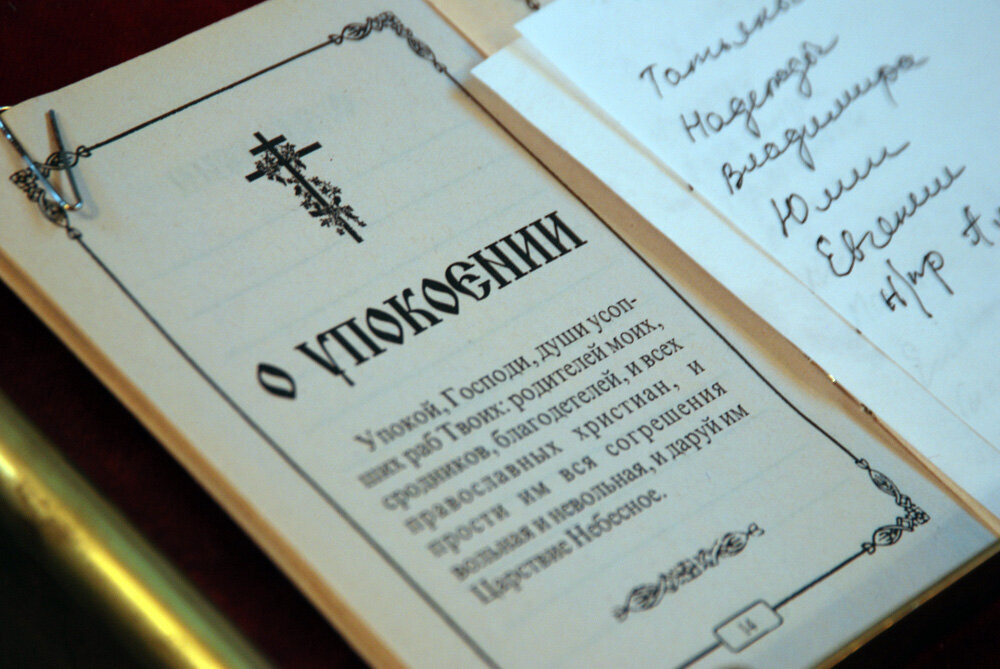 о упокоєнии
Упокой, Господи, души усоп-
ших раб Твоих: родителей моих,
сродников, благодетелей, и всех
православных христиан, и
прости им вся согрешения
вольная и невольная, и даруй им
Царствие Небесное.
14
Надежды
Владимира
Юлии
Евгении
н/пр